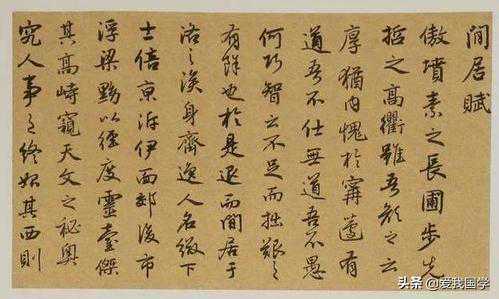 閒居賦
傲墳素之長圃步先
哲之高衢雖吾顏之云
厚猶內愧於甯蘧有
道吾不仕無道吾不愚
何巧智之不足而拙艱之
有餘也於是退而閒居于
洛之涘身齊逸人名綴下
士倍京泝伊面郊後市
浮梁黝以徑度靈臺傑
其高峙窺天文之秘奧
究人事之終始其西則
头条 @爱我国学